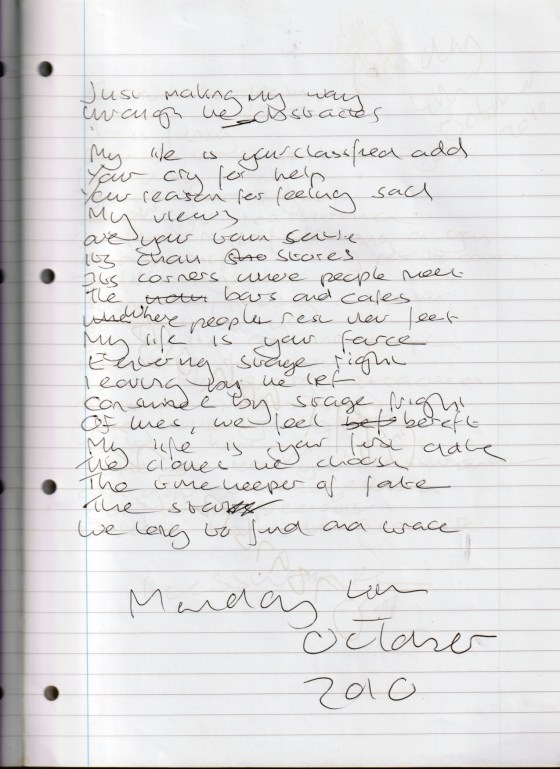 Just making my way
through the obstacles
My life is your classified add
Your cry for help
Your reason for feeling sad
My views
are your town centre
Its chain stores
Its corners where people meet
The bars and cafes
Where people rest their feet
My life is your farce
Entering stage right
leaving by the left
Consumed by stage fright
Of lines, we feel bereft
My life is your first
The clothes we choose
The timekeeper of fate
The stars
We long to find and trace
Monday
October
2010